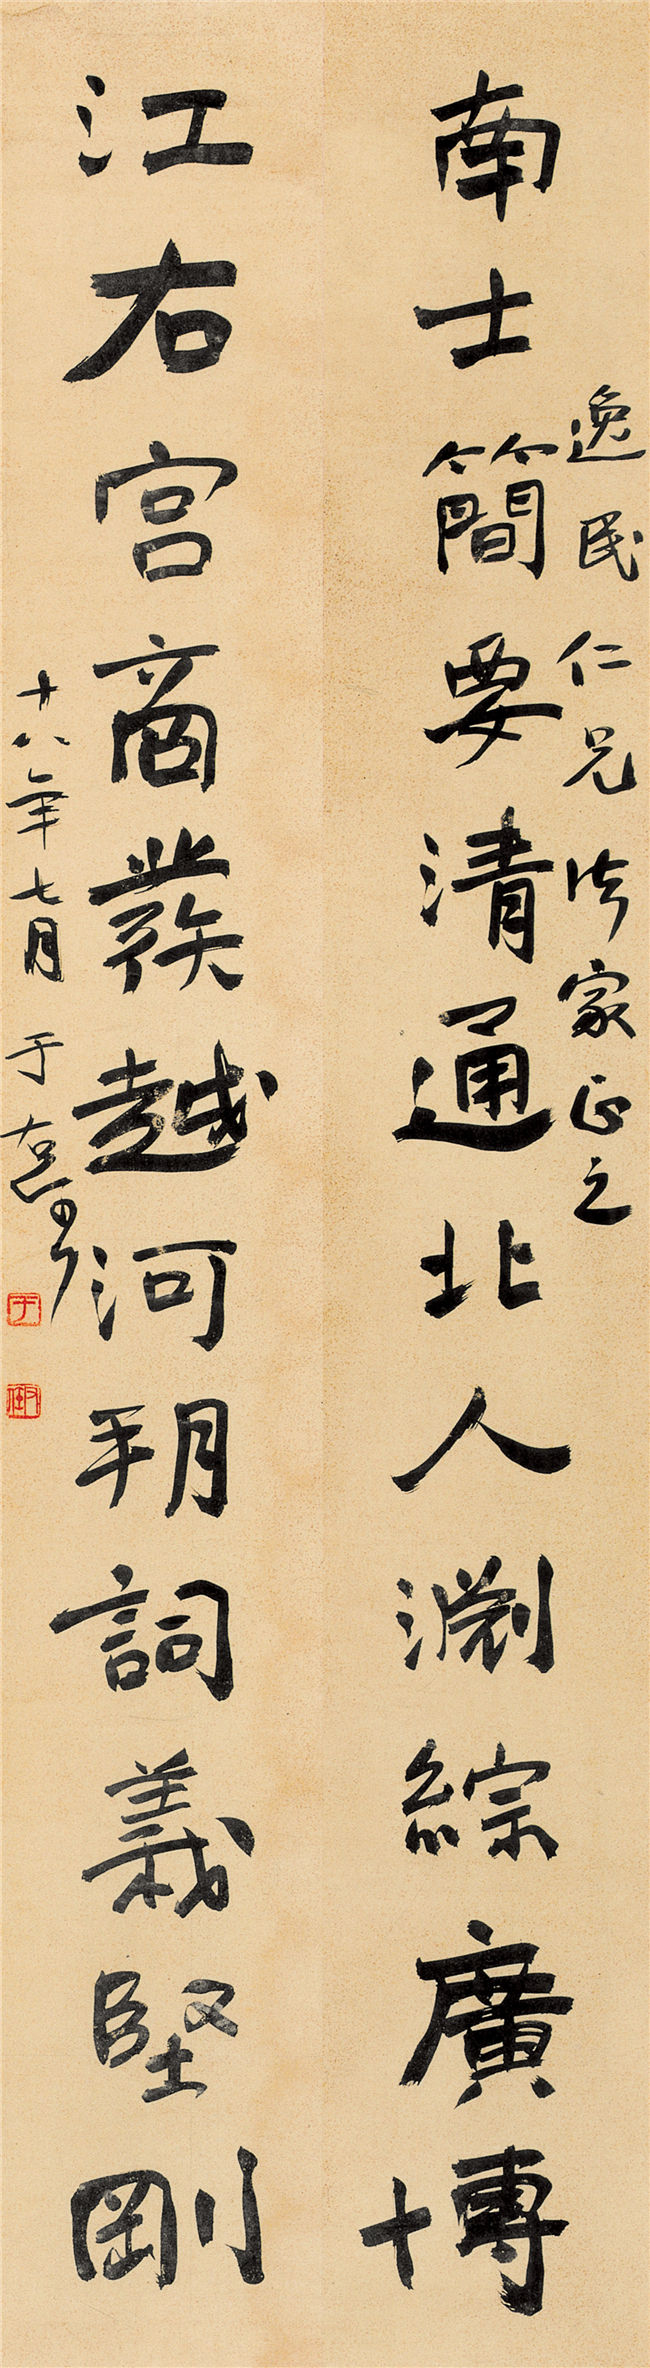 逸民仁兄法家正之
南士簡要清通北人淵綜廣博
江右宮商發越河朔詞義堅剛
十八年七月 于右任
于
右任